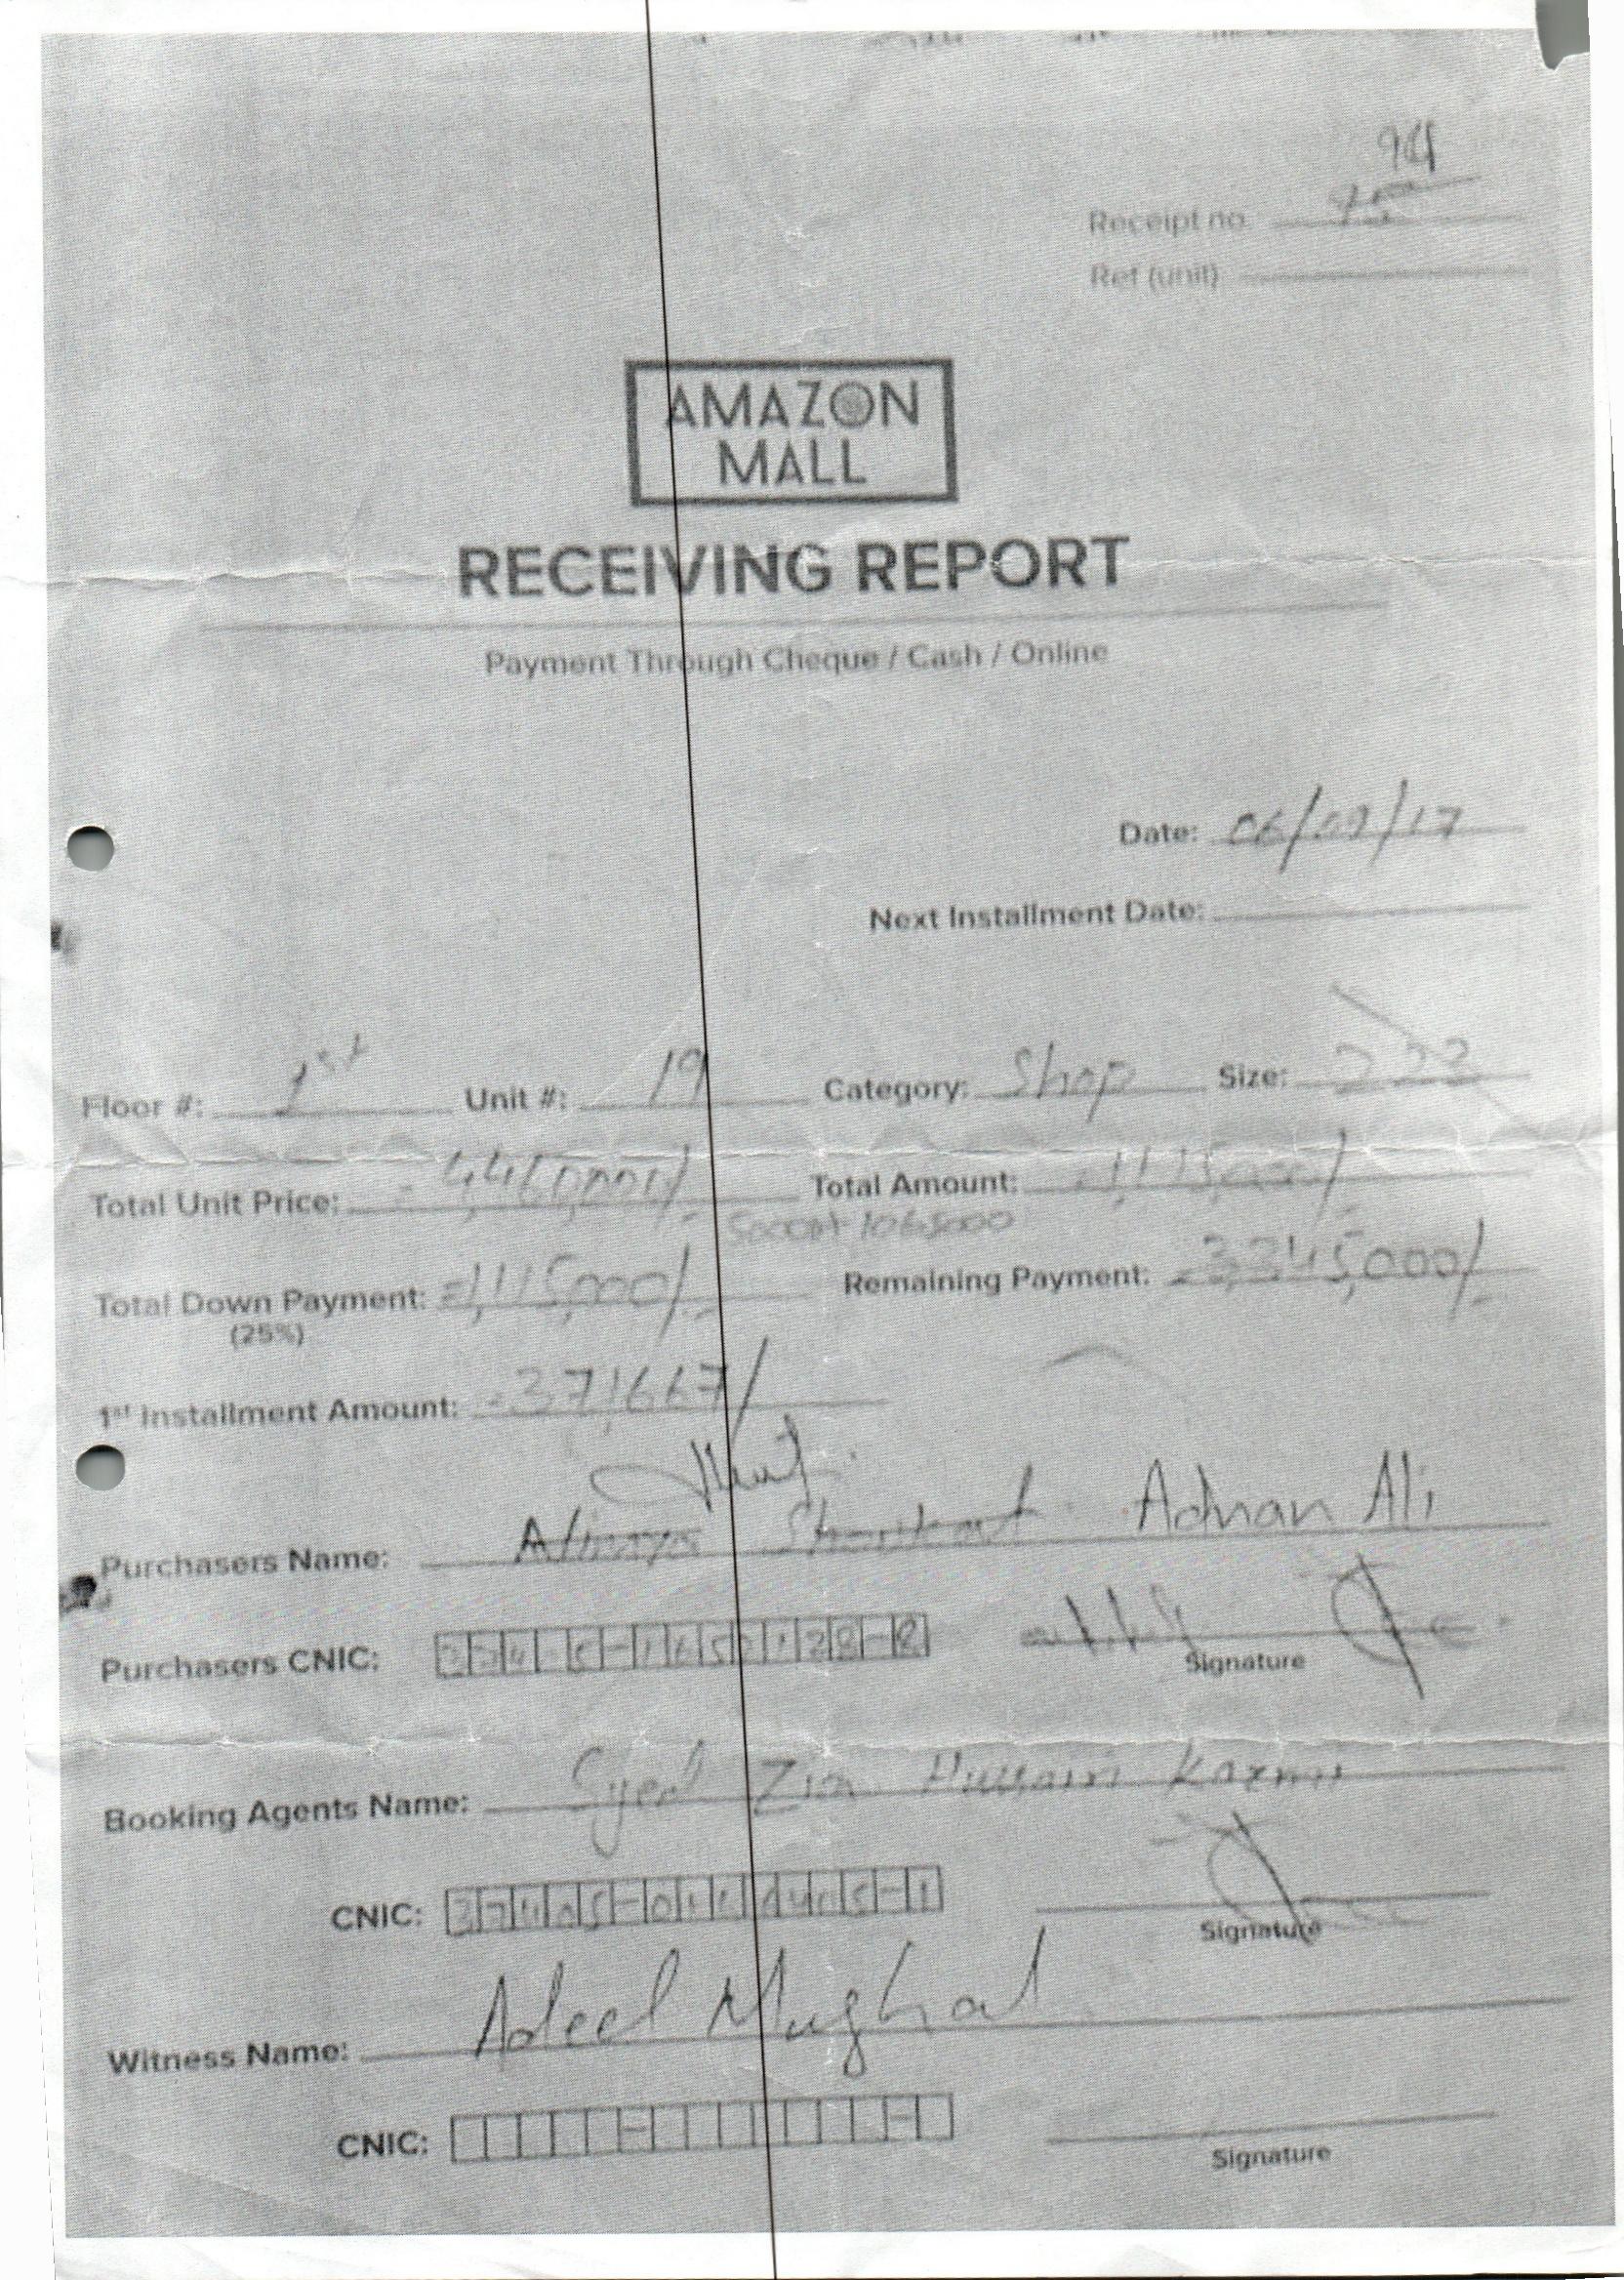 94
Receipt no.
Ref (unit)
AMAZON
MALL
RECEIVING REPORT
Payment Through Cheque / Cash / Online
Date: 06/09/17
Next Installment Date:
Floor #: 1st Unit #: 19 Category: Shop Size: 223
Total Unit Price: 4,460,000/- Total Amount: 1,115,000/-
50000+1065000
Total Down Payment: =1,115,000/- Remaining Payment: =3,345,000/-
(25%)
1st Installment Amount: =371,667/
Purchasers Name: Shaukat Adnan Ali
Purchasers CNIC:
Signature
Booking Agents Name: Syed Zia Hussain Kazmi
CNIC:
Signature
Witness Name: Adeel Mughal
CNIC:
Signature